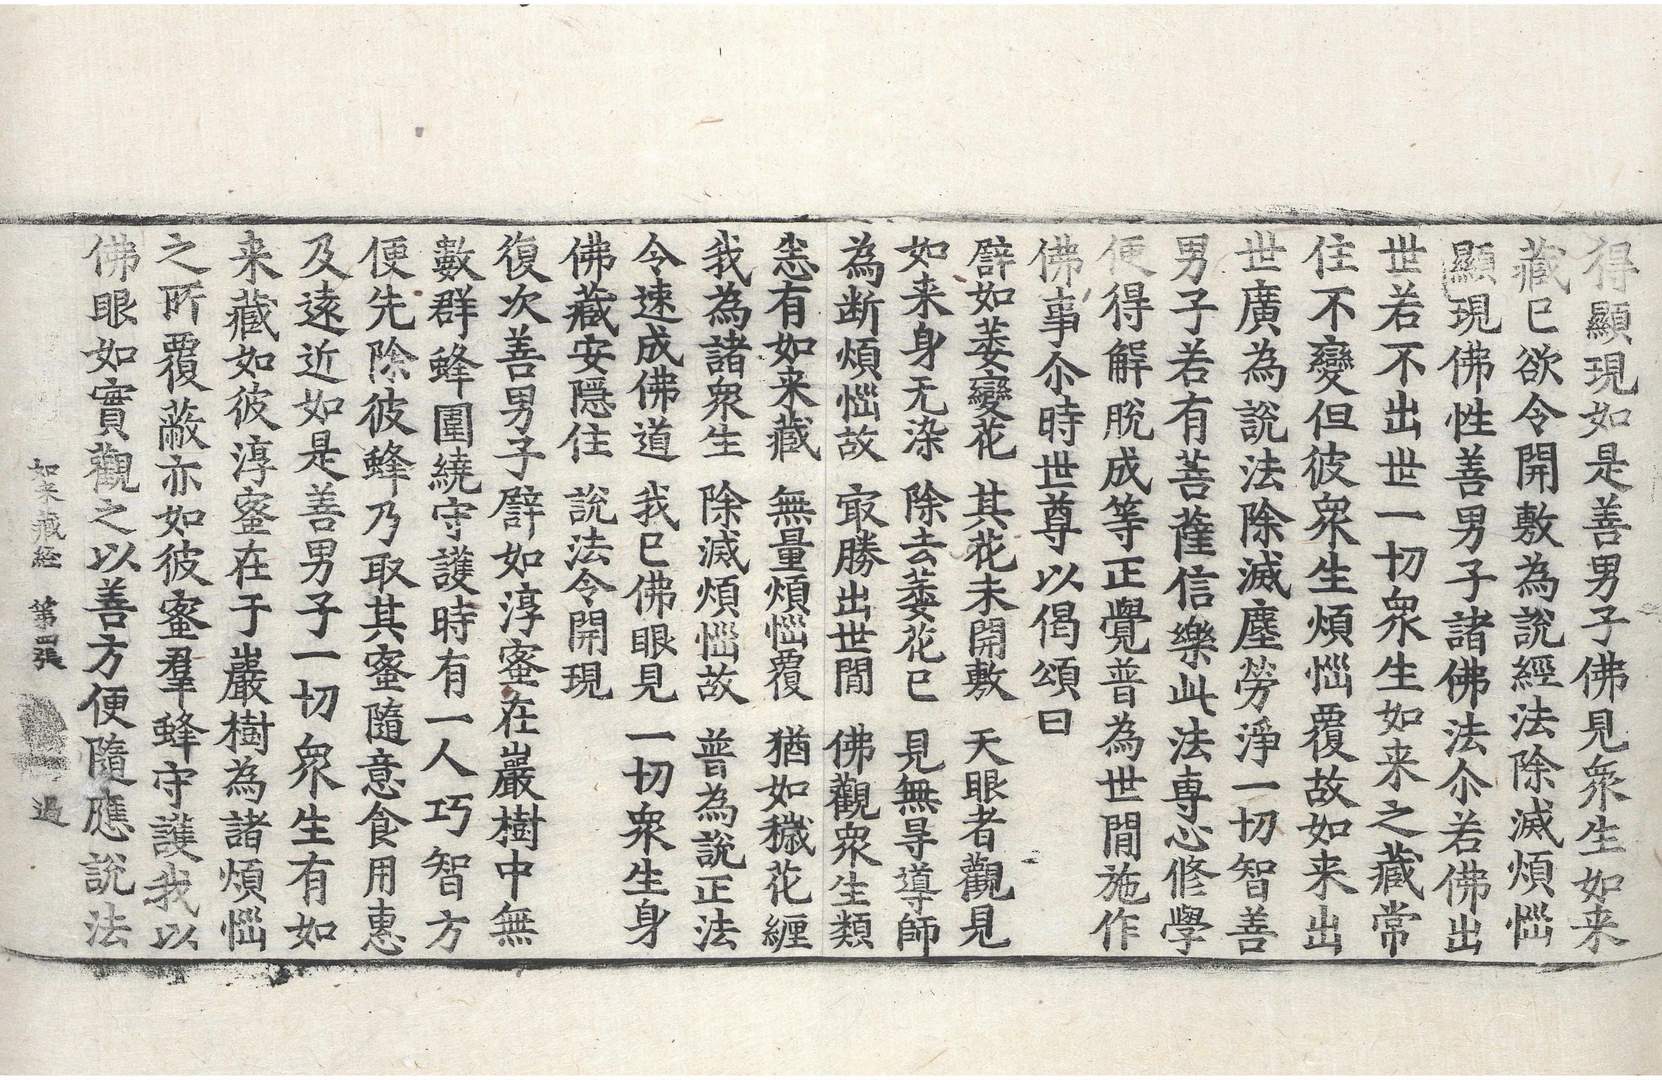 得顯現如是善男子佛見衆生如来
藏已欲令開敷為說經法除滅煩惱
顯現佛性善男子諸佛法尒若佛出
世若不出世一切衆生如来之藏常
住不變但彼衆生煩惱覆故如来出
世廣為說法除滅塵勞淨一切智善
男子若有菩薩信樂此法專心修學
便得解脫成等正覺普為世間施作
佛事尒時世尊以偈頌曰
譬如萎變花 其花未開敷 天眼者觀見
如来身无染 除去萎花已 見無导導師
為断煩惱故 㝡勝出世間 佛觀衆生類
悉有如来藏 無量煩惱覆 猶如穢花纒
我為諸衆生 除滅煩惱故 普為說正法
令速成佛道 我已佛眼見 一切衆生身
佛藏安隱住 說法令開現
復次善男子譬如淳蜜在巖樹中無
數群蜂圍繞守護時有一人巧智方
便先除彼蜂乃取其蜜隨意食用惠
及遠近如是善男子一切衆生有如
来藏如彼淳蜜在于巖樹為諸煩惱
之所覆蔽亦如彼蜜羣蜂守護我以
佛眼如實觀之以善方便隨應說法
如来藏経 第四張 過